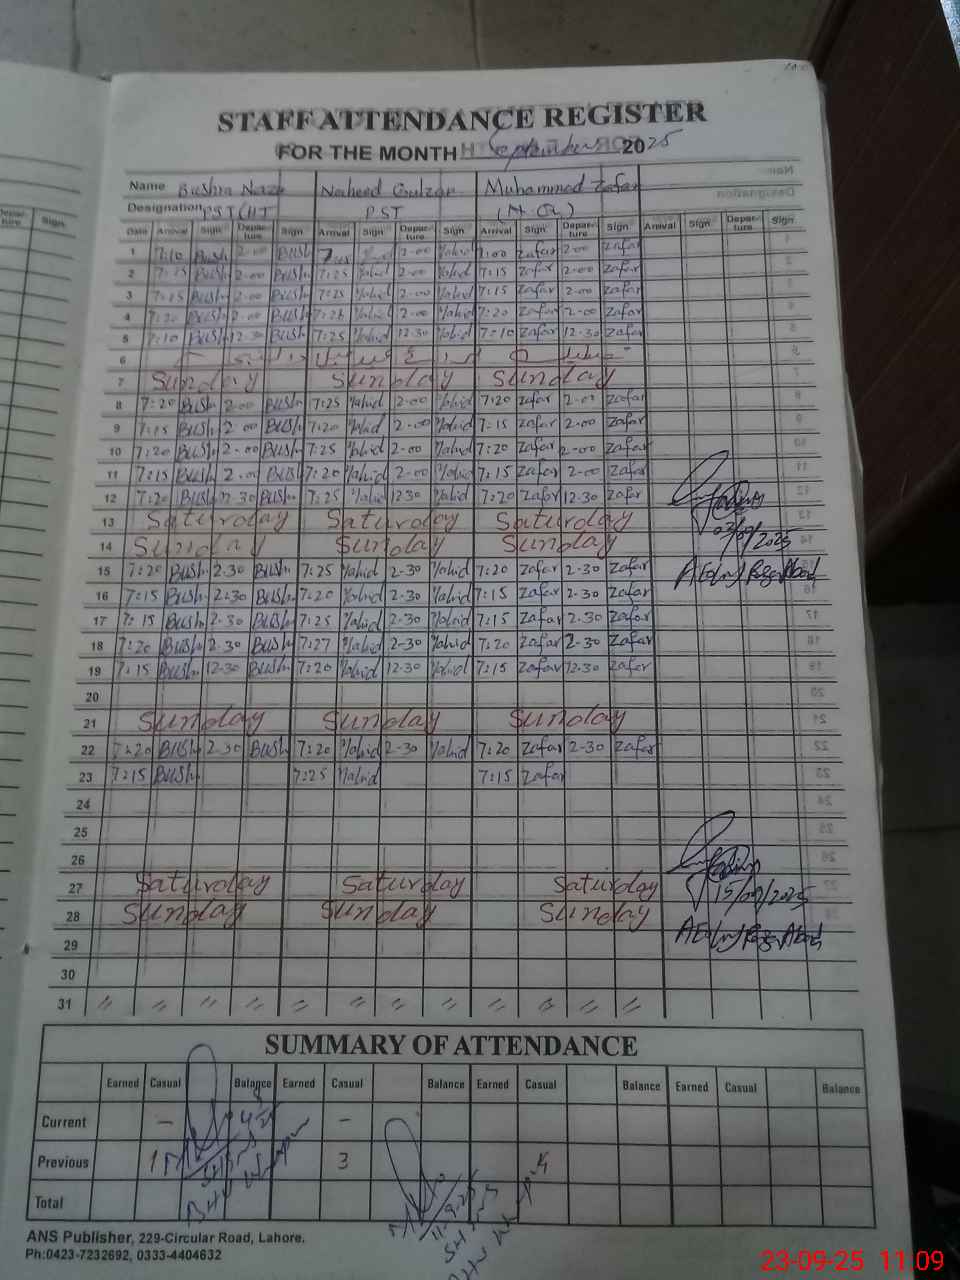 STAFF ATTENDANCE REGISTER
FOR THE MONTH September 2025
Name Bushra Naz Naheed Gulzar Muhammad Zafar
Designation PST/HT PST (N.Q)
Date Arrival Sign Departure Sign Arrival Sign Departure Sign Arrival Sign Departure Sign Arrival Sign Departure Sign
1 7:10 Bush 2-00 Bush Nahid 2-00 Nahid 7:00 Zafar 2-00 Zafar
2 7:15 Bush 2-00 Bush 7:25 Nahid 2-00 Nahid 7:15 Zafar 2-00 Zafar
3 7:15 Bush 2-00 Bush 7:25 Nahid 2-00 Nahid 7:15 Zafar 2-00 Zafar
4 7:20 Bush 2-00 Bush Nahid 2-00 Nahid 7:20 Zafar 2-00 Zafar
5 7:10 Bush 12-30 Bush 7:25 Nahid 12-30 Nahid 7:10 Zafar 12-30 Zafar
6
7 Sunday Sunday Sunday
8 7:20 Bush 2-00 Bush 7:25 Nahid 2-00 Nahid 7:20 Zafar 2-00 Zafar
9 7:15 Bush 2-00 Bush 7:20 Nahid 2-00 Nahid 7:15 Zafar 2-00 Zafar
10 7:20 Bush 2-00 Bush 7:25 Nahid 2-00 Nahid 7:20 Zafar 2-00 Zafar
11 7:15 Bush 2-00 Bush 7:20 Nahid 2-00 Nahid 7:15 Zafar 2-00 Zafar
12 7:20 Bush 12-30 Bush 7:25 Nahid 12-30 Nahid 7:20 Zafar 12-30 Zafar
13 Saturday Saturday Saturday
14 Sunday Sunday Sunday
15 7:20 Bush 2-30 Bush 7:25 Nahid 2-30 Nahid 7:20 Zafar 2-30 Zafar
16 7:15 Bush 2-30 Bush 7:20 Nahid 2-30 Nahid 7:15 Zafar 2-30 Zafar
17 7:15 Bush 2-30 Bush 7:25 Nahid 2-30 Nahid 7:15 Zafar 2-30 Zafar
18 7:20 Bush 2-30 Bush 7:27 Nahid 2-30 Nahid 7:20 Zafar 2-30 Zafar
19 7:15 Bush 12-30 Bush 7:20 Nahid 12-30 Nahid 7:15 Zafar 12-30 Zafar
20
21 Sunday Sunday Sunday
22 7:20 Bush 2-30 Bush 7:20 Nahid 2-30 Nahid 7:20 Zafar 2-30 Zafar
23 7:15 Bush 7:25 Nahid 7:15 Zafar
24
25
26
27 Saturday Saturday Saturday
28 Sunday Sunday Sunday
29
30
31 // // // // // // // // // // // //
02/09/2025
15/09/2025
SUMMARY OF ATTENDANCE
Earned Casual Balance Earned Casual Balance Earned Casual Balance Earned Casual Balance
Current - -
Previous 1 3
Total
11-9-25
ANS Publisher, 229-Circular Road, Lahore.
Ph:0423-7232692, 0333-4404632
23-09-25 11:09